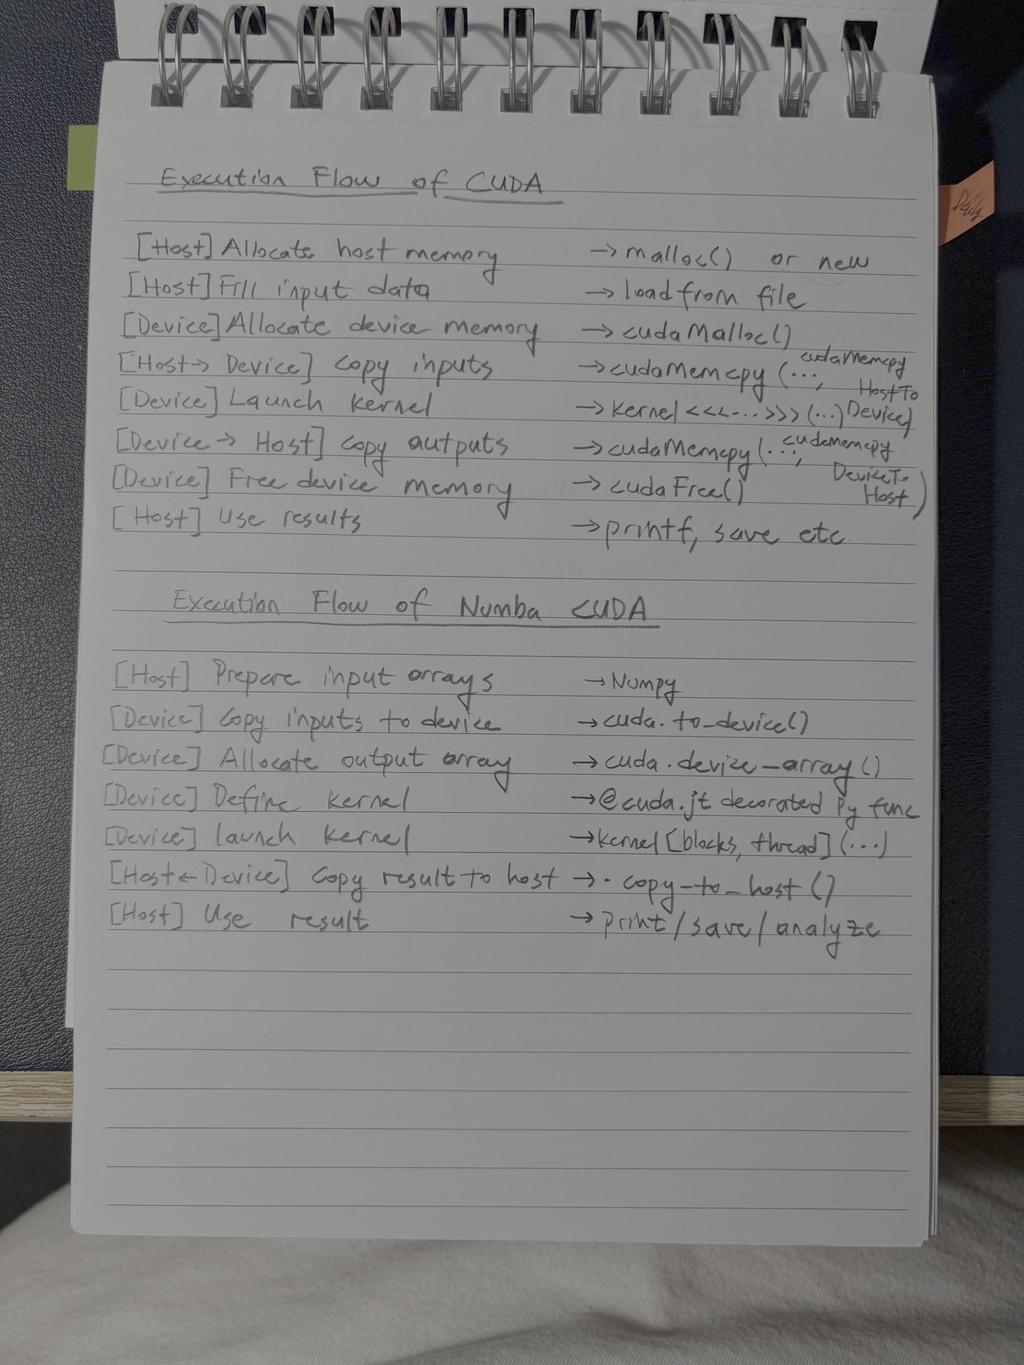 Execution Flow of CUDA
Daily
[Host] Allocate host memory → malloc() or new
[Host] Fill input data → load from file
[Device] Allocate device memory → cudaMalloc()
[Host → Device] copy inputs → cudaMemcpy (..., cudaMemcpy HostTo Device)
[Device] Launch kernel → kernel <<<...>>> (...)
[Device → Host] copy outputs → cudaMemcpy (..., cudaMemcpy DeviceTo Host)
[Device] Free device memory → cudaFree()
[Host] Use results → printf, save etc
Execution Flow of Numba CUDA
[Host] Prepare input arrays → Numpy
[Device] Copy inputs to device → cuda.to_device()
[Device] Allocate output array → cuda.device_array()
[Device] Define kernel → @cuda.jt decorated Py func
[Device] launch kernel → kernel [blocks, thread] (...)
[Host ← Device] Copy result to host → .copy_to_host()
[Host] Use result → print/save/analyze